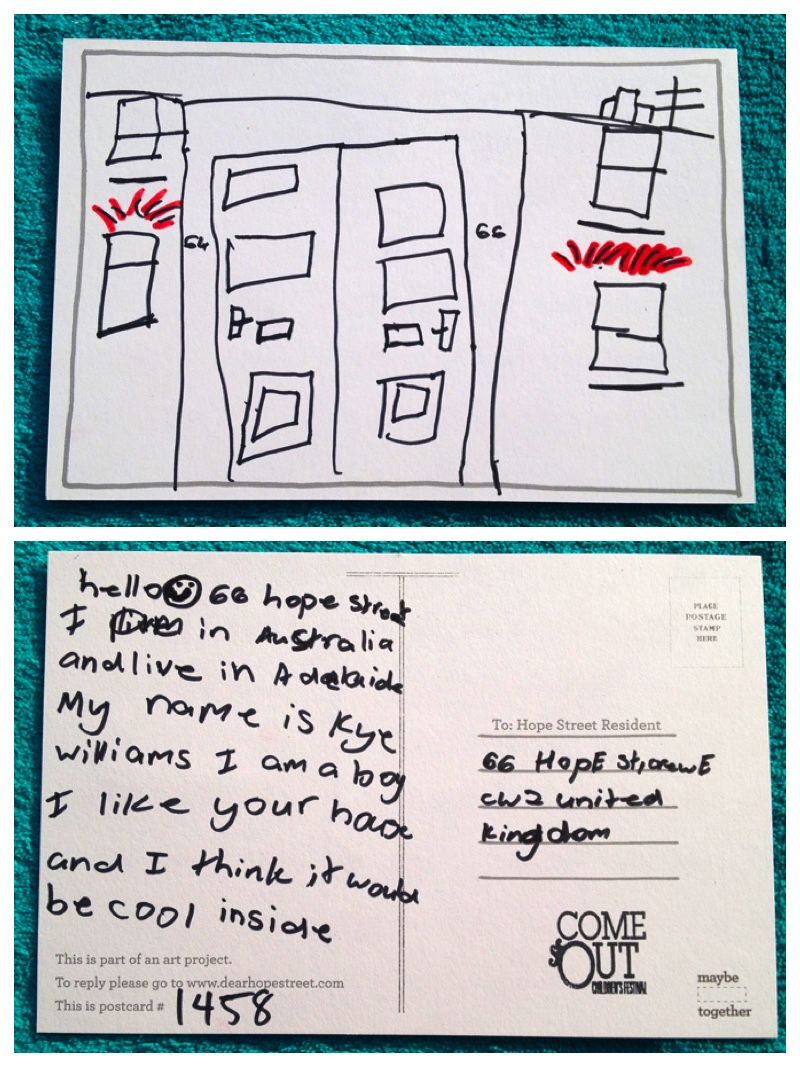 64
66
hello 66 hope street
I in Australia
and live in Adelaide
My name is Kye
williams I am a boy
I like your house
and I think it would
be cool inside
This is part of an art project.
To reply please go to www.dearhopestreet.com
This is postcard # 1458
PLACE
POSTAGE
STAMP
HERE
To: Hope Street Resident
66 HopE St, crewE
cw2 united
kingdom
COME
OUT
CHILDREN'S FESTIVAL
maybe
together